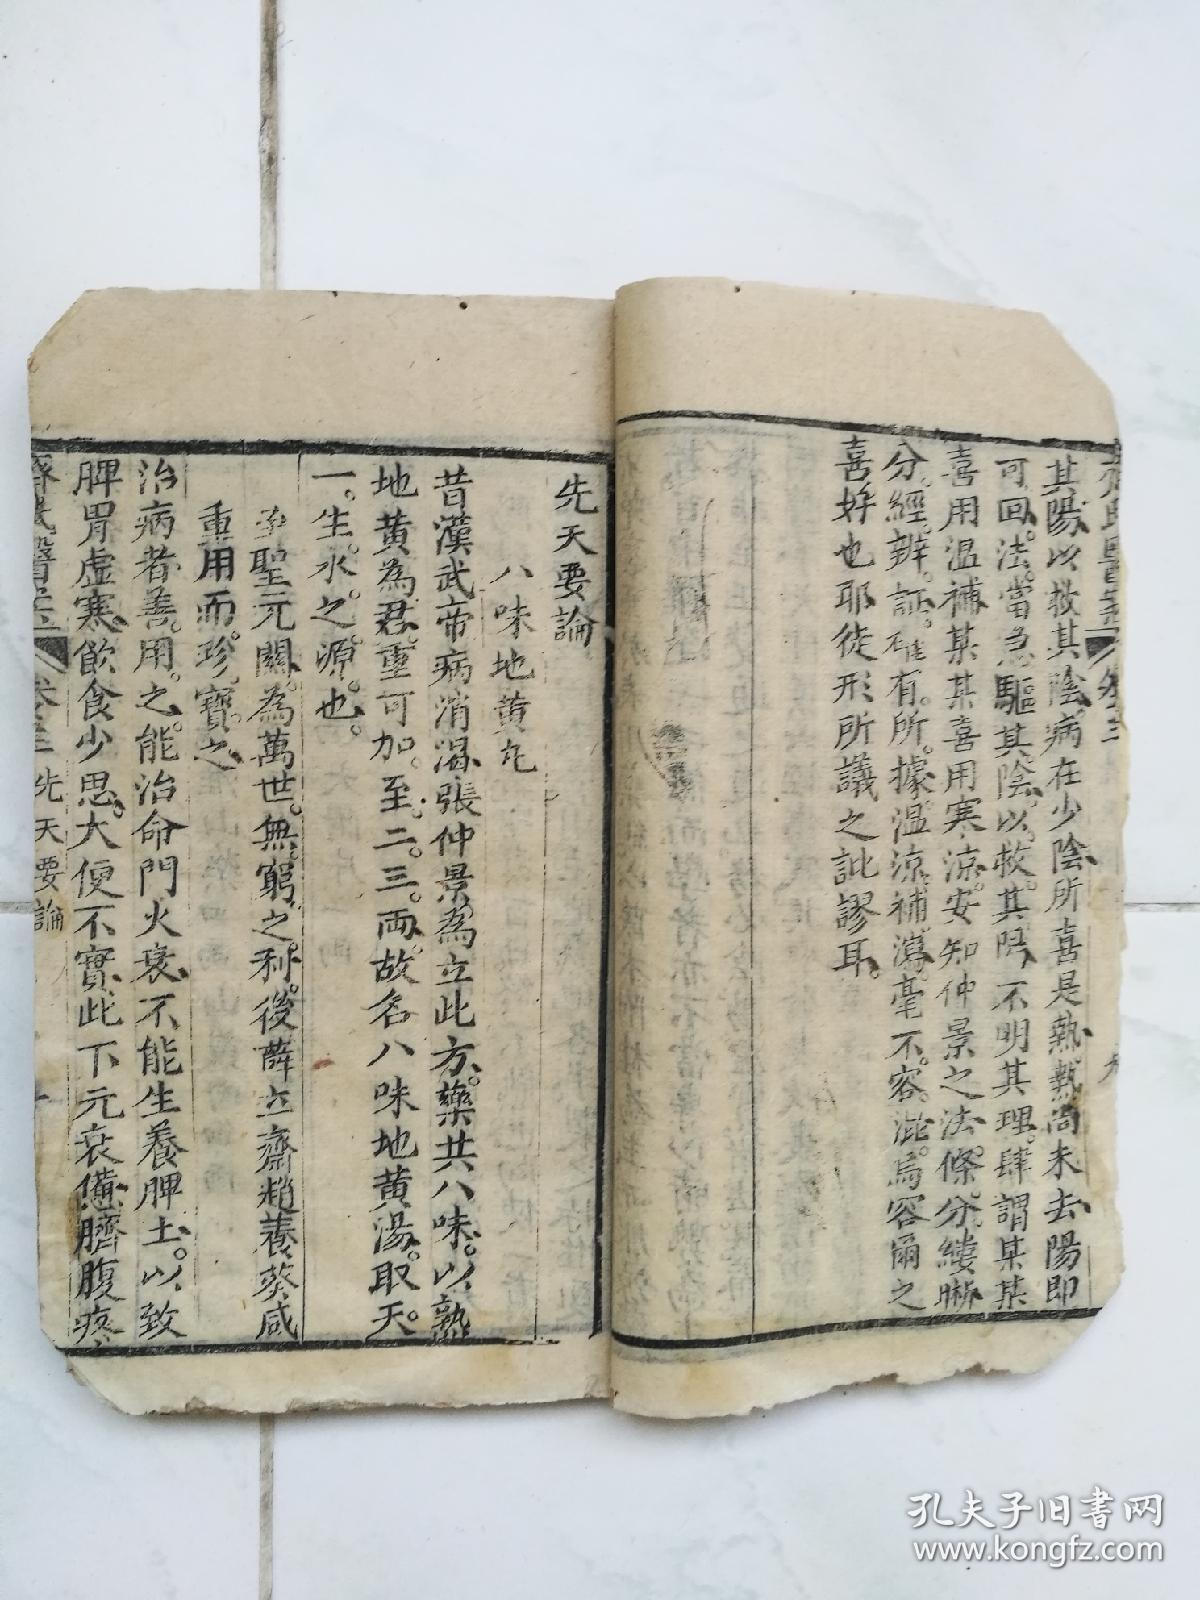 其陽以救其陰病在少陰所喜是熱熱尚未去陽即
可回法當急驅其陰以救其陽不明其理肆謂某某
喜用温補某某喜用寒涼安知仲景之法條分縷晰
分經辨証確有所據温涼補瀉毫不容混烏容爾之
喜好也耶徒形所議之訛謬耳
先天要論
八味地黄丸
昔漢武帝病消渴張仲景為立此方藥共八味以熟
地黄為君重可加至二三兩故名八味地黄湯取天
一生水之源也
聖元關為萬世無窮之利後薛立齋趙養葵咸
重用而珍寶之
治病者善用之能治命門火衰不能生養脾土以致
脾胃虚寒飲食少思大便不實此下元衰憊臍腹疼
齊氏醫案 卷三 先天要論
孔夫子旧书网
www.kongfz.com